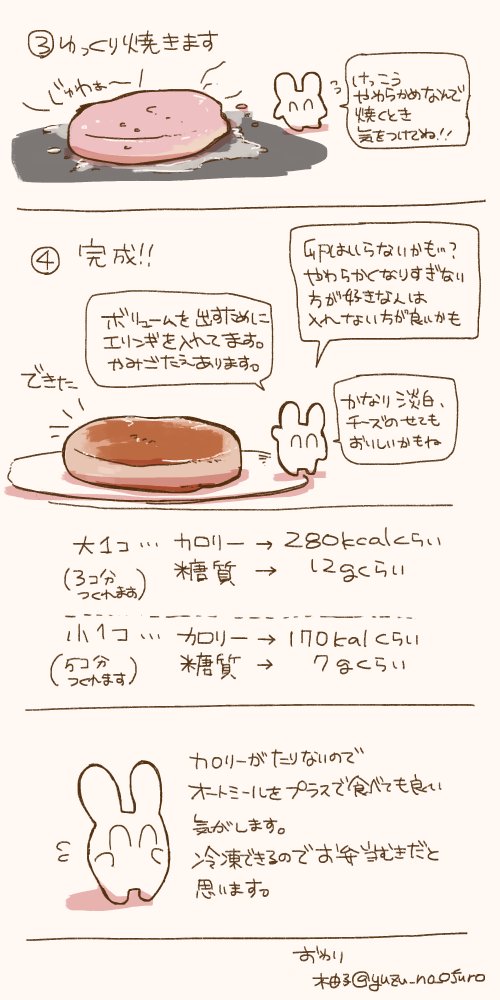 ③ゆっくり焼きます
じゅわぁ〜
けっこう
やわらかめなんで
焼くとき
気をつけてね!!
④ 完成!!
卵はいらないかも…?
やわらかくなりすぎない
方が好きな人は
入れない方が良いかも
ボリュームを出すために
エリンギを入れてます。
かみごたえあります。
できた
かなり淡白、
チーズのせても
おいしいかもね
大1コ… カロリー→280kcalくらい
(3コ分
つくれます)
糖質 → 12gくらい
小1コ… カロリー→170kcalくらい
(5コ分
つくれます)
糖質 → 7gくらい
カロリーがたりないので
オートミールをプラスで食べても良い
気がします。
冷凍できるのでお弁当むきだと
思います。
おわり
柚子@yuzu_na_ofuro